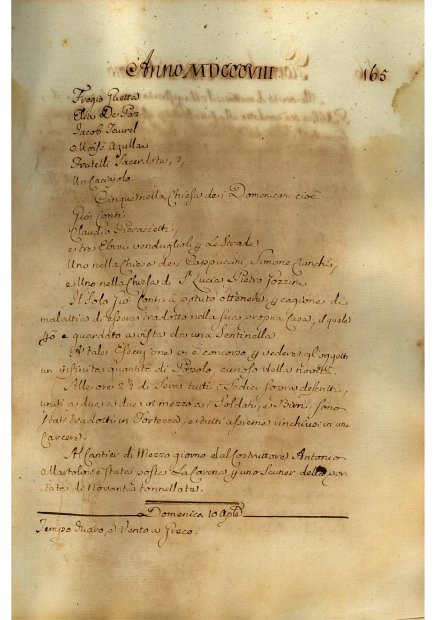 Anno MDCCCVIII 165
Elia De Paz
Jacob Taurel
Moisè Azullai
Fratelli Sacerdote, 2,
Un Caciajolo
Cinque nella Chiesa dei Domenicani cioè
Gio: Conti
Claudio
e tre Ebrei venduglioli p Le Strade
Uno nella Chiesa dei Cappucini, Simone
e Uno nella Chiesa di S. Lucia Pietro Gozzini
Il Solo Gio: Conti à potuto ottenere, p cagione di
malattia di essere tradotto nella sua propria Casa, il quale
è guardato a vista da una Sentinella
A tale Esecuzione vi è concorso p vedere gl'oggetti
un infinita quantità di Popolo curioso della novità.
Alle ore 2½ di Sera tutti i Sedici sopra descritti,
uniti a due a due in mezzo a i Soldati, e i Birri, sono
stati tradotti in Fortezza, e tutti assieme rinchiusi in una
Carcere;
Al Cantier di Mezzo giorno e dal Costruttore Antonio
Martolini è stata posta La Carena p uno Scuner della por
tata di Novanta tonnellate.
Domenica 10 Aple
Tempo Vario, e Vento a Greco.